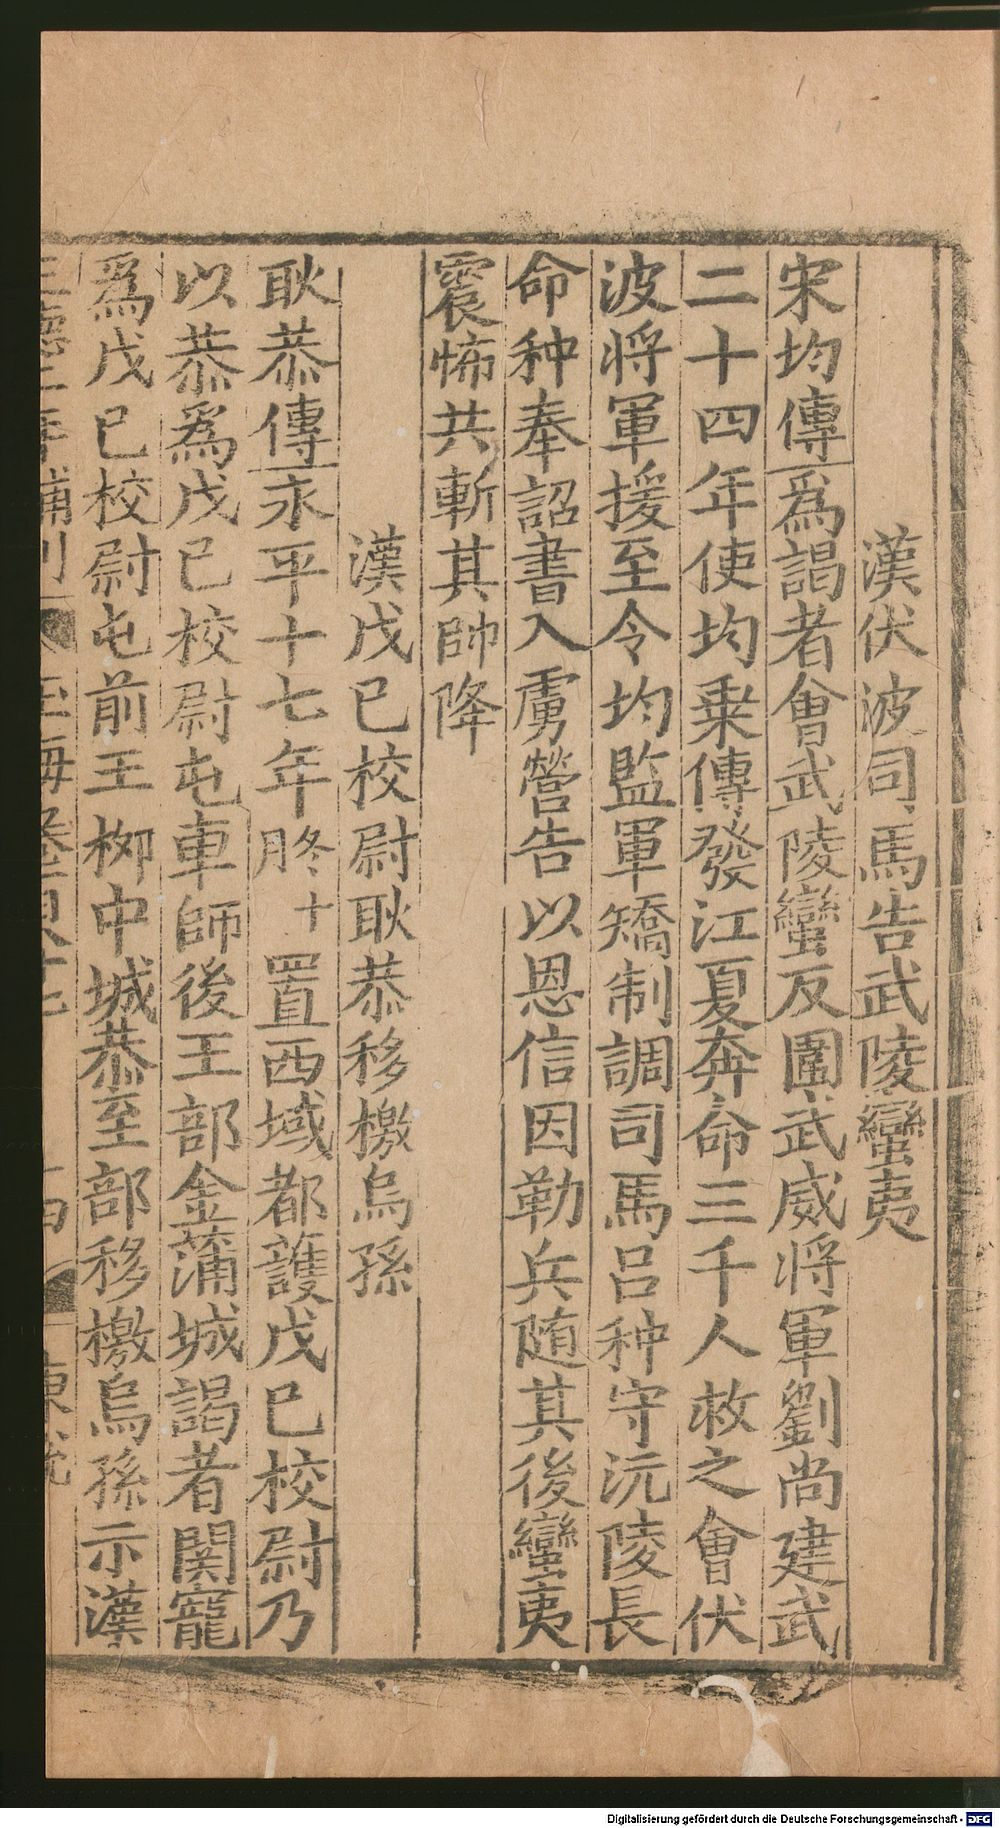 漢伏波司馬告武陵蠻夷
宋均傳爲謁者會武陵蠻反圍武威將軍劉尚建武
二十四年使均乗傳發江夏奔命三千人救之會伏
波將軍援至令均監軍矯制調司馬吕种守沅陵長
命种奉詔書入虜營告以恩信因勒兵随其後蠻夷
震怖共斬其帥降
漢戊已校尉耿恭移檄烏孫
耿恭傳永平十七年冬十月置西域都護戊已校尉乃
以恭爲戊已校尉屯車師後王部金蒲城謁者関寵
爲戊已校尉屯前王栁中城恭至部移檄烏孫示漢
玉海卷
Digitalisierung gefördert durch die Deutsche Forschungsgemeinschaft - DFG